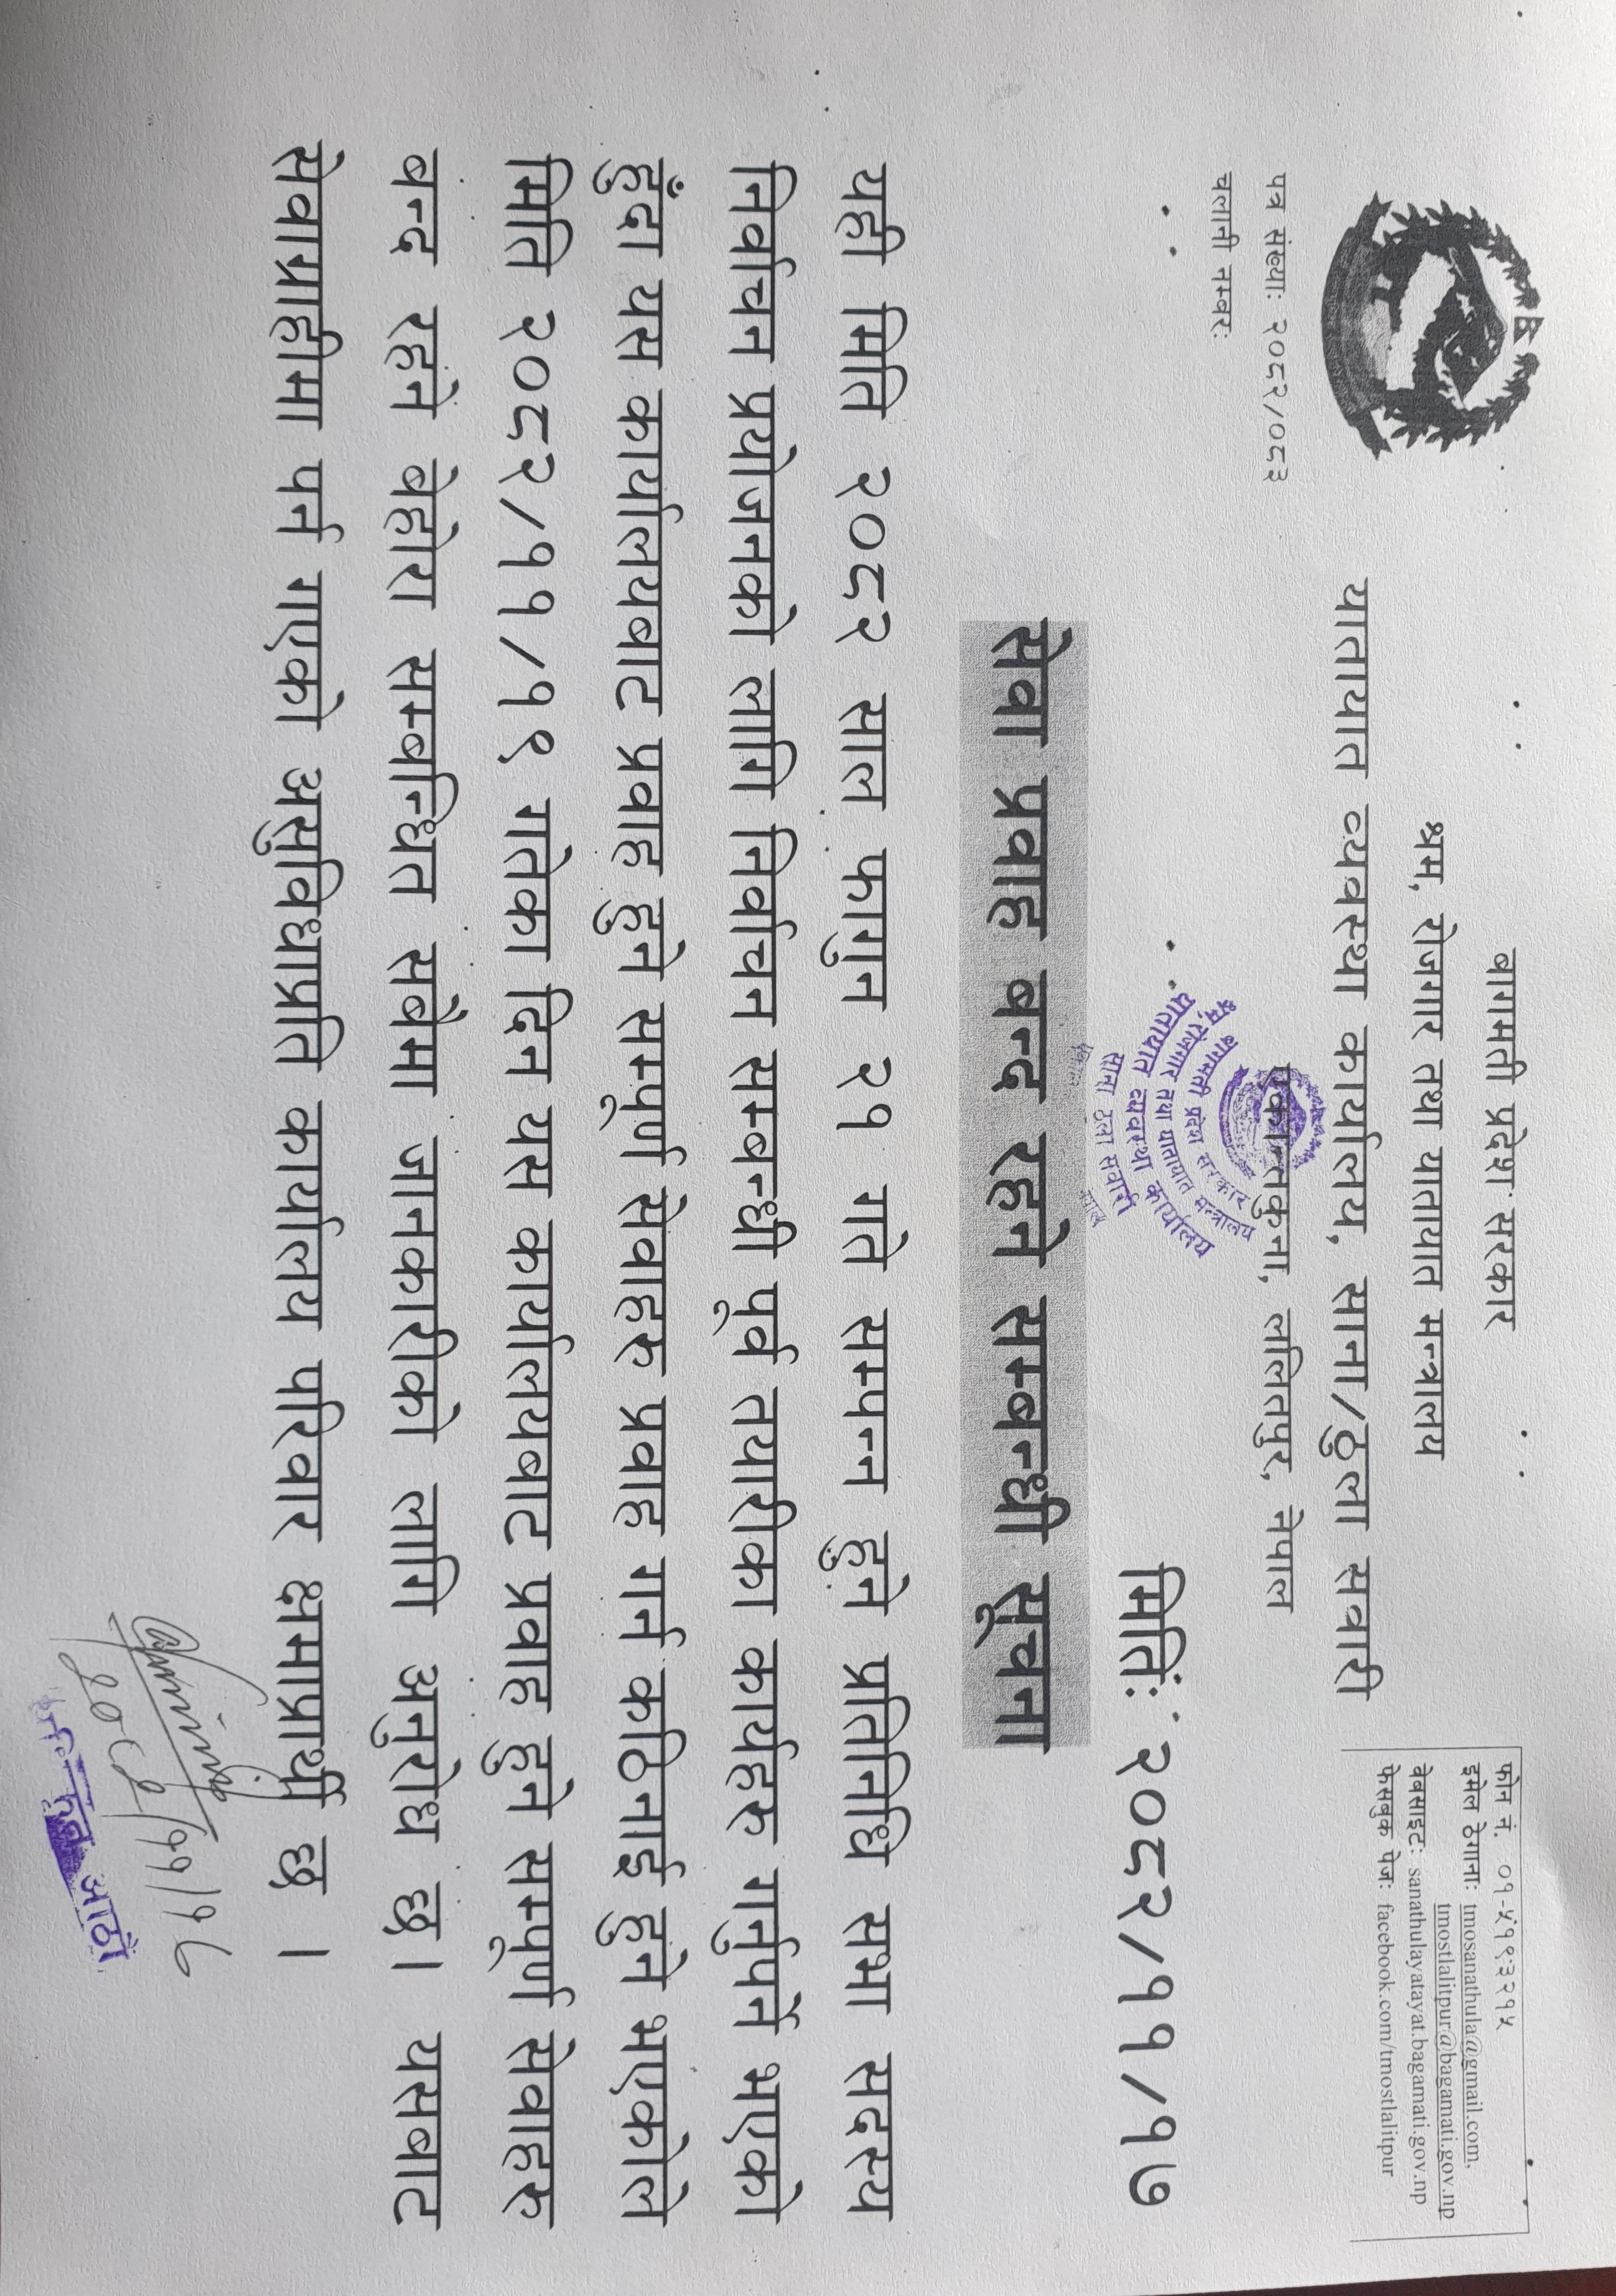 बागमती प्रदेश सरकार
श्रम, रोजगार तथा यातायात मन्त्रालय
यातायात व्यवस्था कार्यालय, साना/ठुला सवारी
एकान्तकुना, ललितपुर, नेपाल
फोन नं. ०१-५१९३२१५
इमेल ठेगानाः tmosanathula@gmail.com,
tmostlalitpur@bagamati.gov.np
वेबसाइटः sanathulayatayat.bagamati.gov.np
फेसबुक पेजः facebook.com/tmostlalitpur
पत्र संख्याः २०८२/०८३
चलानी नम्बरः
बागमती प्रदेश सरकार
श्रम, रोजगार तथा यातायात मन्त्रालय
यातायात व्यवस्था कार्यालय
साना ठुला सवारी
मितिः २०८२/११/१७
सेवा प्रवाह बन्द रहने सम्बन्धी सूचना
यही मिति २०८२ साल फागुन २१ गते सम्पन्न हुने प्रतिनिधि सभा सदस्य
निर्वाचन प्रयोजनको लागि निर्वाचन सम्बन्धी पूर्व तयारीका कार्यहरु गर्नुपर्ने भएको
हुँदा यस कार्यालयबाट प्रवाह हुने सम्पूर्ण सेवाहरु प्रवाह गर्न कठिनाई हुने भएकोले
मिति २०८२/११/१९ गतेका दिन यस कार्यालयबाट प्रवाह हुने सम्पूर्ण सेवाहरु
बन्द रहने बेहोरा सम्बन्धित सबैमा जानकारीको लागि अनुरोध छ। यसबाट
सेवाग्राहीमा पर्न गएको असुविधाप्रति कार्यालय परिवार क्षमाप्रार्थी छ ।
२०८२/११/१८
आठौं